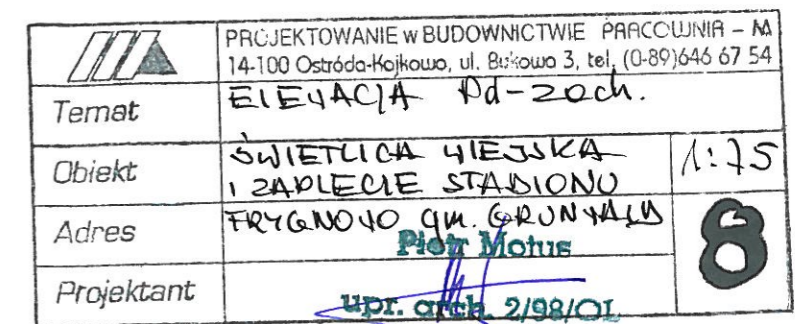 PROJEKTOWANIE w BUDOWNICTWIE PRACOWNIA - M
14-100 Ostróda-Kajkowo, ul. Bukowa 3, tel. (0-89)646 67 54
Temat ELEWACJA Pd-zach.
Obiekt ŚWIETLICA WIEJSKA
I ZAPLECIE STADIONU
1:75
Adres FRYGNOWO gm. GRUNWALD
8
Piotr Motus
Projektant
upr. arch. 2/98/OL